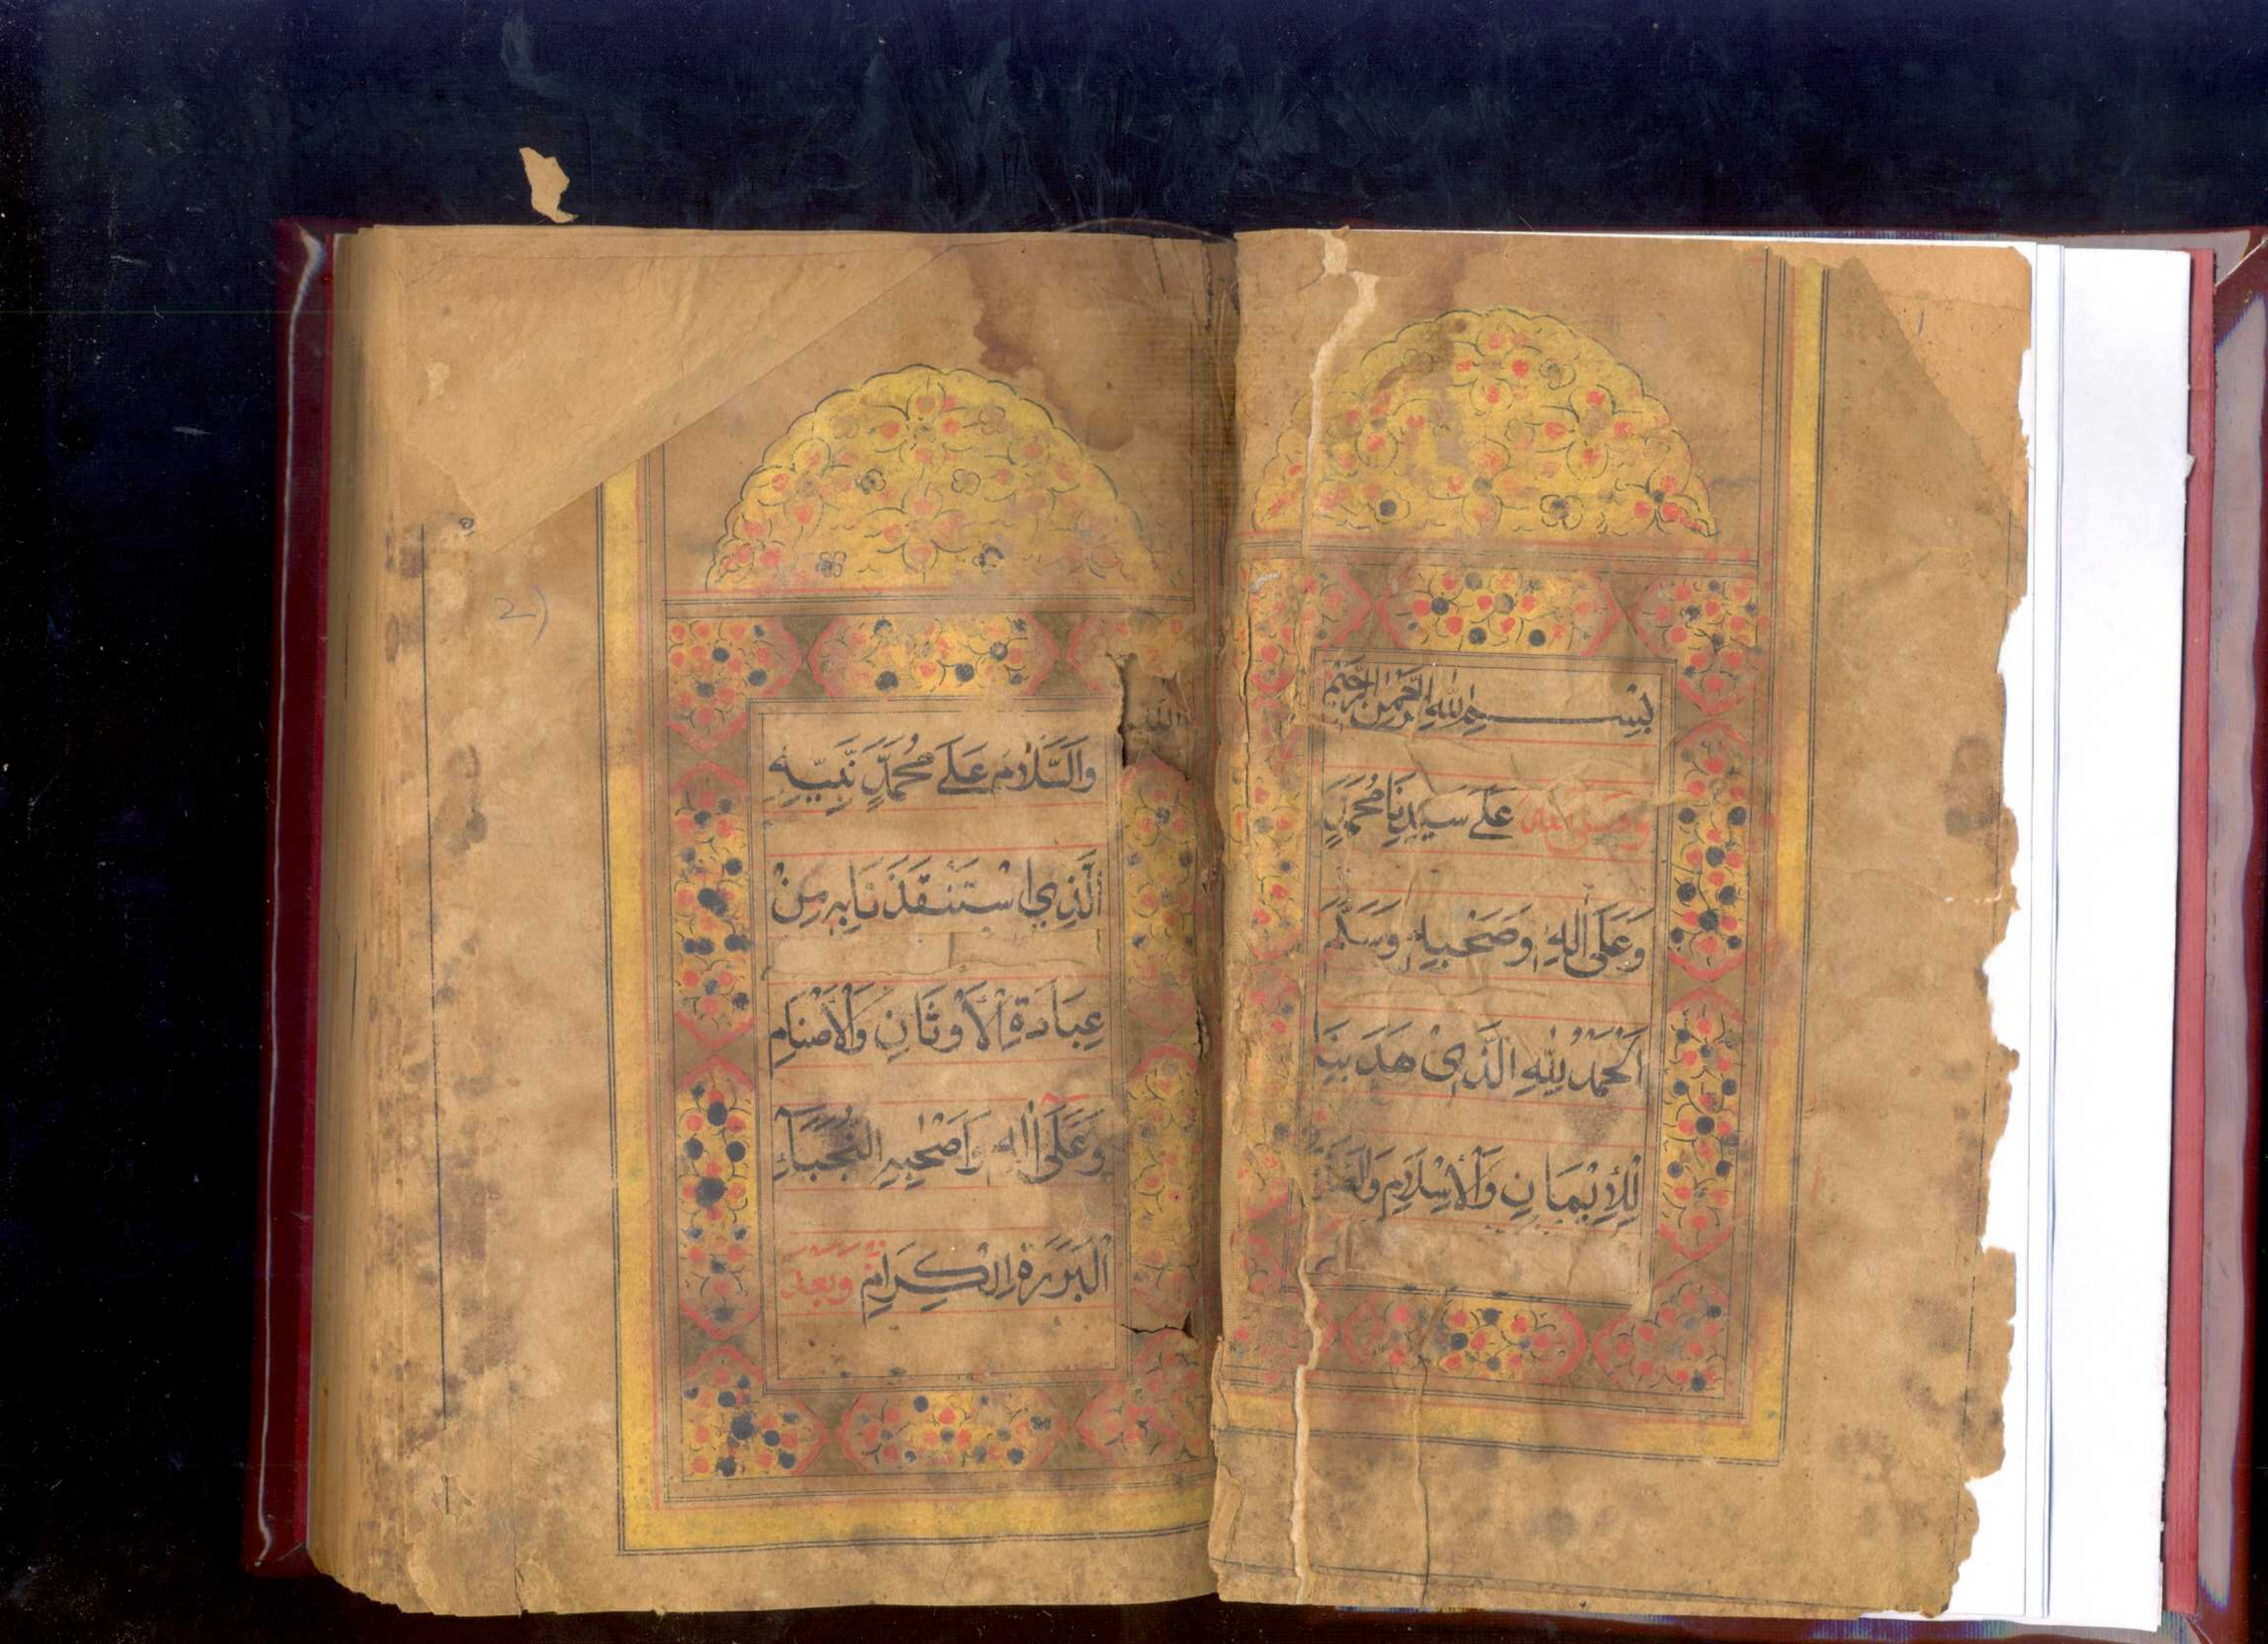 بِسْمِ اللهِ الرَّحْمٰنِ الرَّحِيْمِ
وصلى الله عَلَى سَيِّدِنَا مُحَمَّدٍ
وَعَلَى اٰلِهِ وَصَحْبِهِ وَسَلَّمَ
اَلْحَمْدُ لِلّٰهِ الَّذِىْ هَدَيٰنَا
لِلْإِيْمَانِ وَالْإِسْلَامِ
وَالسَّلَامُ عَلَى مُحَمَّدٍ نَّبِيِّهِ
الَّذِي اسْتَنْقَذَنَا بِهِ مِنْ
عِبَادَةِ الْأَوْثَانِ وَالْأَصْنَامِ
وَعَلَى اٰلِهِ وَاَصْحٰبِهِ النُّجَبَآءِ
الْبَرَرَةِ الْكِرَامِ وَبَعْدَ
2)